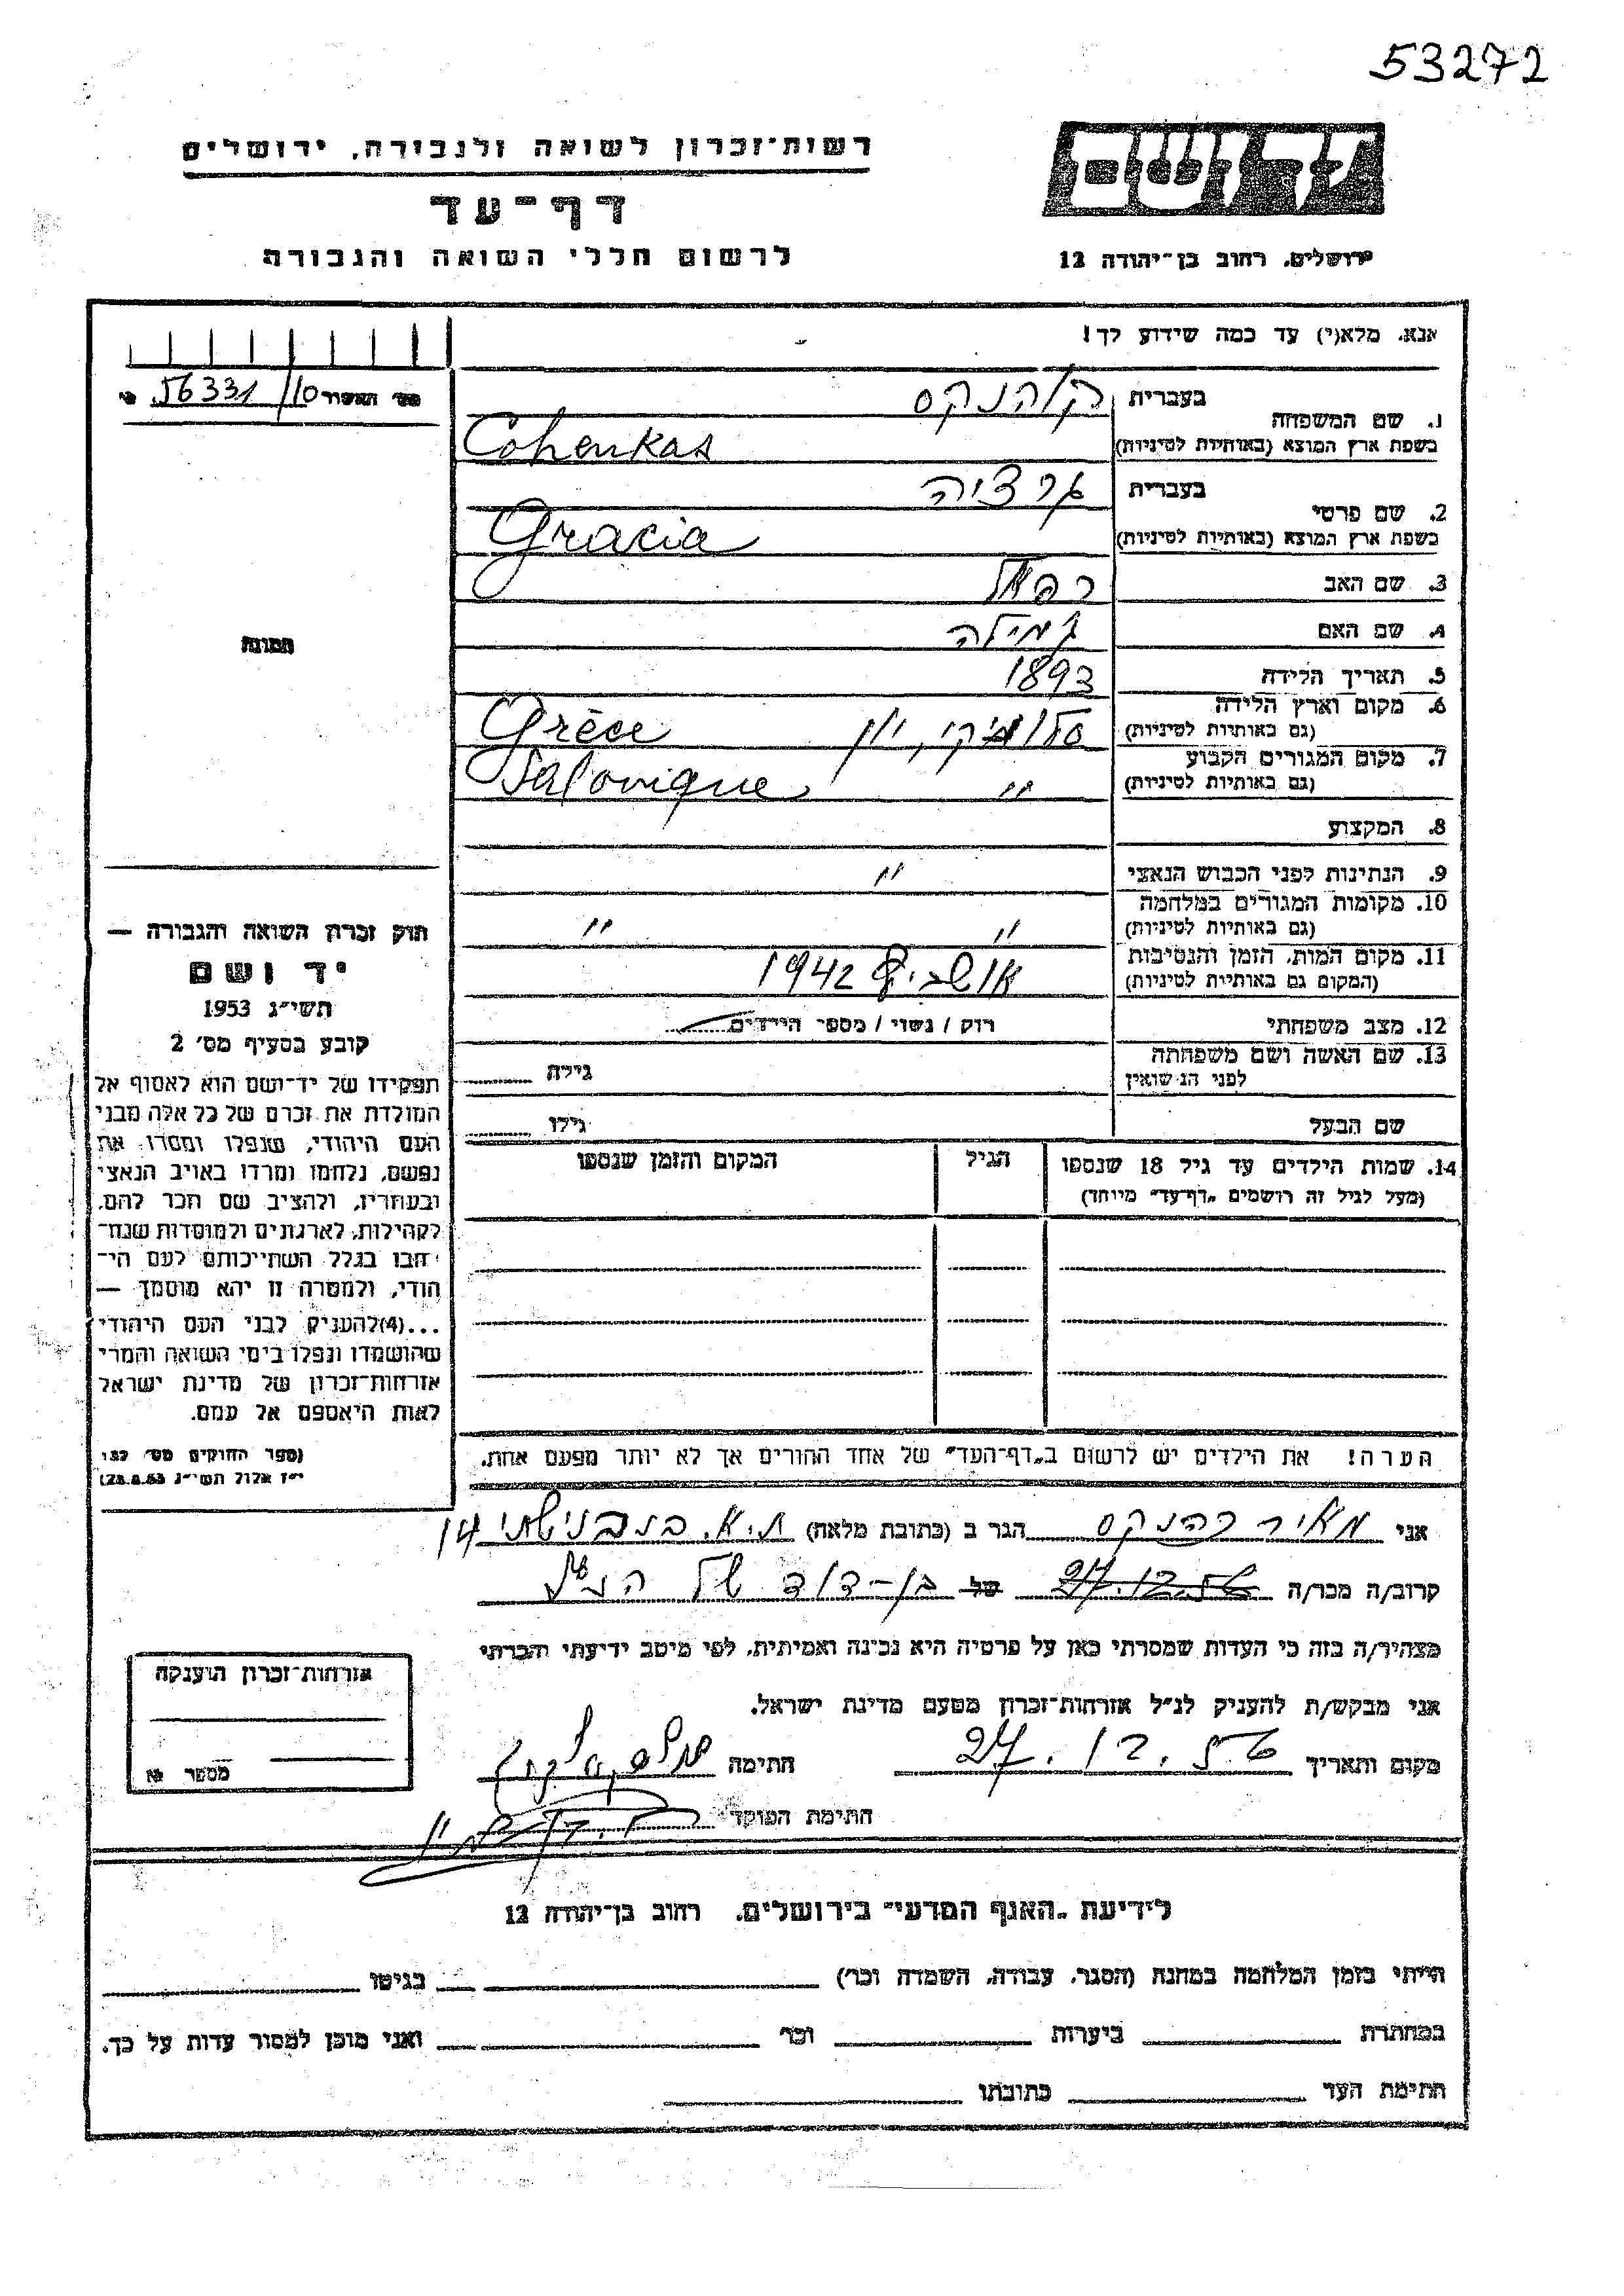 53272
רשות־זכרון לשואה ולגבורה, ירושלים
דף־עד
לרשום חללי השואה והגבורה
ירושלים, רחוב בן־יהודה 12
אנא, מלא(י) עד כמה שידוע לך!
56331/10
1. שם המשפחה
בעברית
קוהנקס
בשפת ארץ המוצא (באותיות לטיניות)
Cohenkas
2. שם פרטי
בעברית
גרציה
בשפת ארץ המוצא (באותיות לטיניות)
Gracia
3. שם האב
רפאל
4. שם האם
ג'מילה
5. תאריך הלידה
1893
6. מקום וארץ הלידה
(גם באותיות לטיניות)
סלוניקי, יון Grèce
7. מקום המגורים הקבוע
(גם באותיות לטיניות)
" Salonique
8. המקצוע
9. הנתינות לפני הכבוש הנאצי
"
10. מקומות המגורים במלחמה
(גם באותיות לטיניות)
" "
11. מקום המות, הזמן והנסיבות
(המקום גם באותיות לטיניות)
אושביץ 1942
12. מצב משפחתי
רוק / נשוי / מספר הילדים
13. שם האשה ושם משפחתה
לפני הנשואין
גילה
שם הבעל
גילו
14. שמות הילדים עד גיל 18 שנספו
(מעל לגיל זה רושמים „דף־עד" מיוחד)
הגיל
המקום והזמן שנספו
תמונה
חוק זכרון השואה והגבורה —
יד ושם
תשי"ג 1953
קובע בסעיף מס' 2
תפקידו של יד־ושם הוא לאסוף אל
המולדת את זכרם של כל אלה מבני
העם היהודי, שנפלו ומסרו את
נפשם, נלחמו ומרדו באויב הנאצי
ובעוזריו, ולהציב שם וזכר להם,
לקהילות, לארגונים ולמוסדות שנח־
רבו בגלל השתייכותם לעם הי־
הודי, ולמטרה זו יהא מוסמך —
...(4)להעניק לבני העם היהודי
שהושמדו ונפלו בימי השואה והמרי
אזרחות־זכרון של מדינת ישראל
לאות היאספם אל עמם.
(ספר החוקים מס' 132
י"ז אלול תשי"ג 28.8.53)
הערה! את הילדים יש לרשום ב„דף־העד" של אחד ההורים אך לא יותר מפעם אחת.
אני מאיר כהנקס הגר ב (כתובת מלאה) ת.א. בנבנישתי 14
קרוב/ה מכר/ה 27.12.56 של בן-דוד של הנ"ל
מצהיר/ה בזה כי העדות שמסרתי כאן על פרטיה היא נכונה ואמיתית, לפי מיטב ידיעתי והכרתי
אני מבקש/ת להעניק לנ"ל אזרחות־זכרון מטעם מדינת ישראל.
מקום ותאריך 27.12.56 חתימה
חתימת הפוקד
אזרחות־זכרון הוענקה
מספר
לידיעת „האגף המדעי" בירושלים, רחוב בן־יהודה 12
הייתי בזמן המלחמה במחנה (הסגר, עבודה, השמדה וכו') בגיטו
במחתרת ביערות וכו' ואני מוכן למסור עדות על כך.
חתימת העד כתובתו